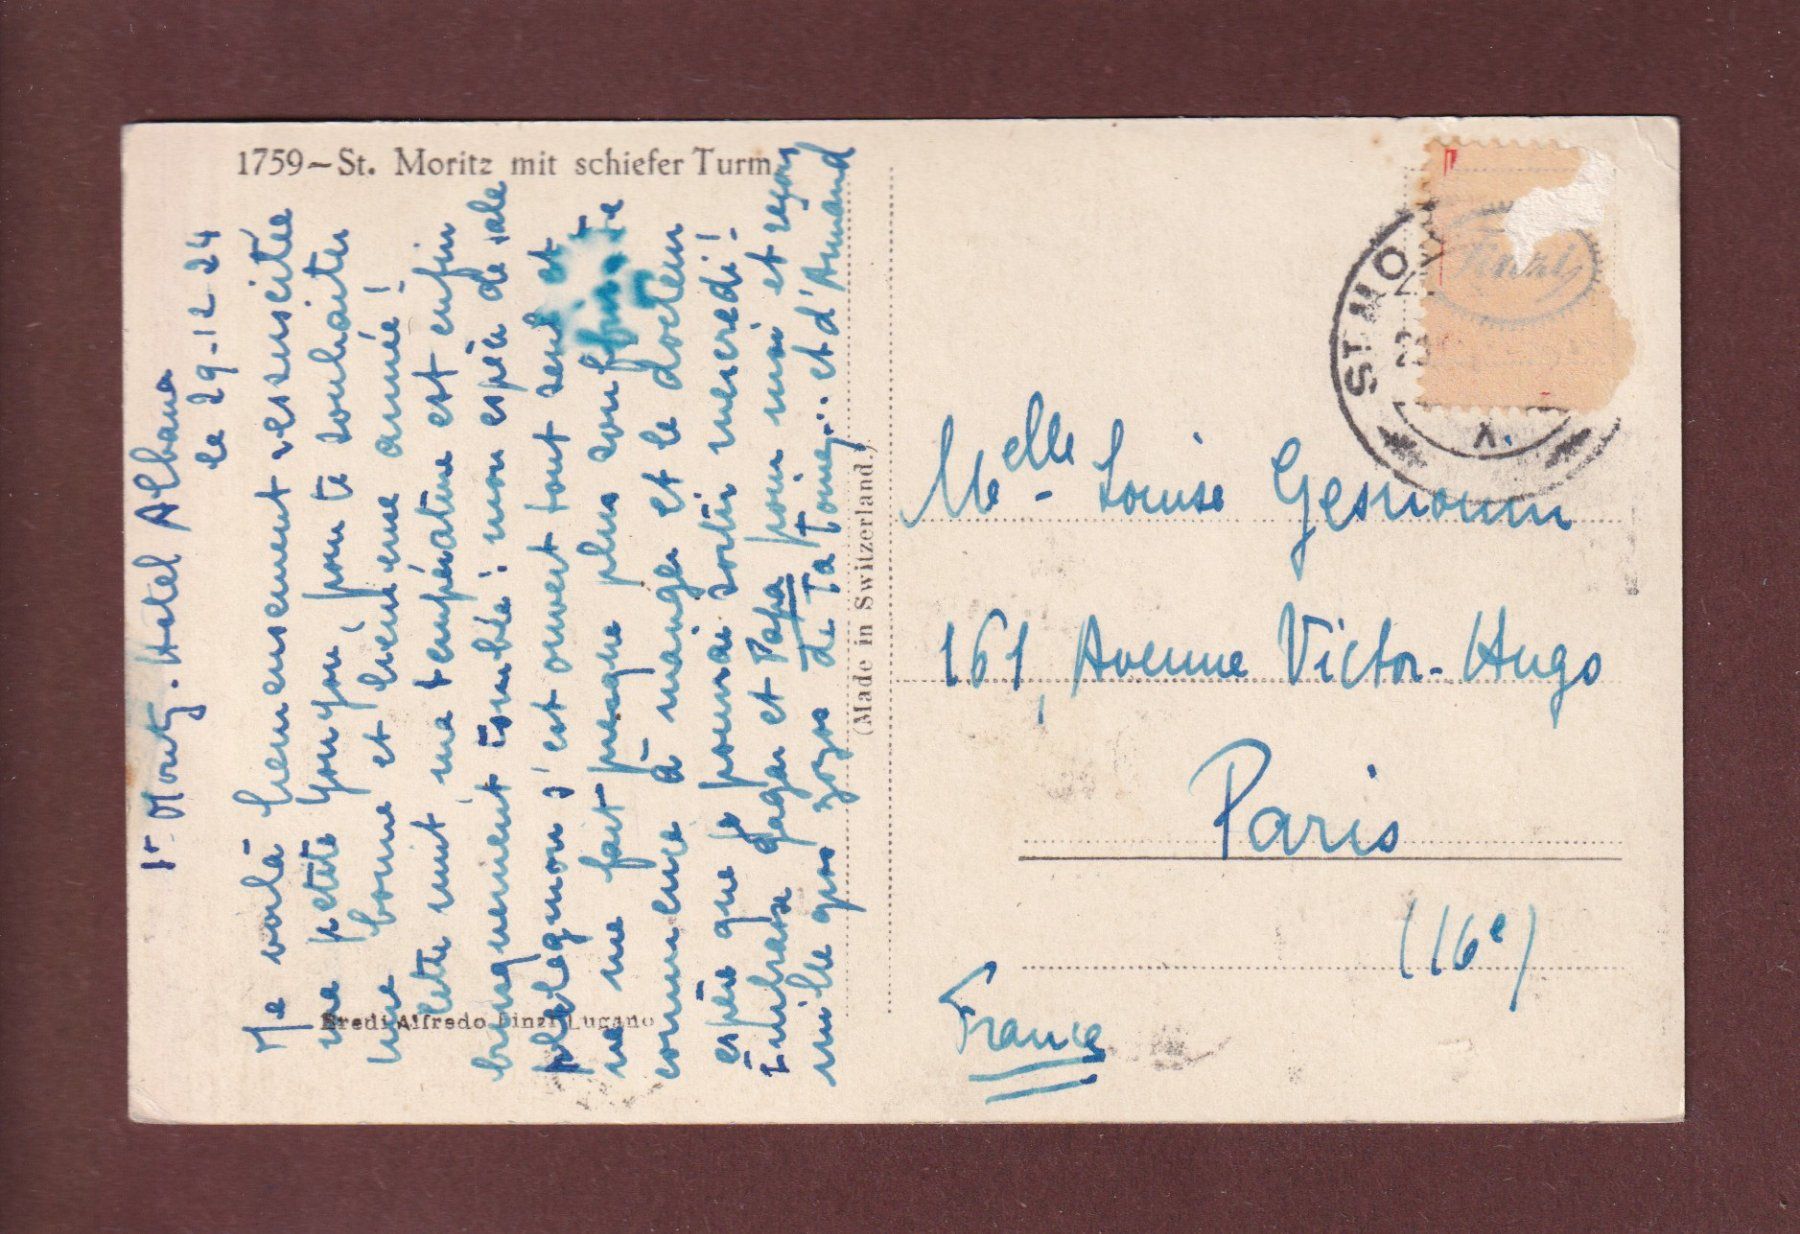 1759 – St. Moritz mit schiefer Turm
St. Moritz. Hotel Albana
le 29-12-24
Me voilà heureusement ressuscitée
ma petite Youyou, pour te souhaiter
une bonne et heureuse année!
Cette nuit ma température est enfin
brusquement tombée: mon espèce de sale
phlegmon s'est ouvert tout seul et
je ne me fait presque plus souffrir. Je
commence à manger et le docteur
espère que je pourrai sortir mercredi!
Embrasse Gaga et Papa pour moi et reçois
mille gros zozos de ta Toiny... et d'Armand
Eredi Alfredo Finzi Lugano
(Made in Switzerland.)
ST. MO
Finzi
Melle - Louise
161, Avenue Victor-Hugo
Paris
(16e)
France